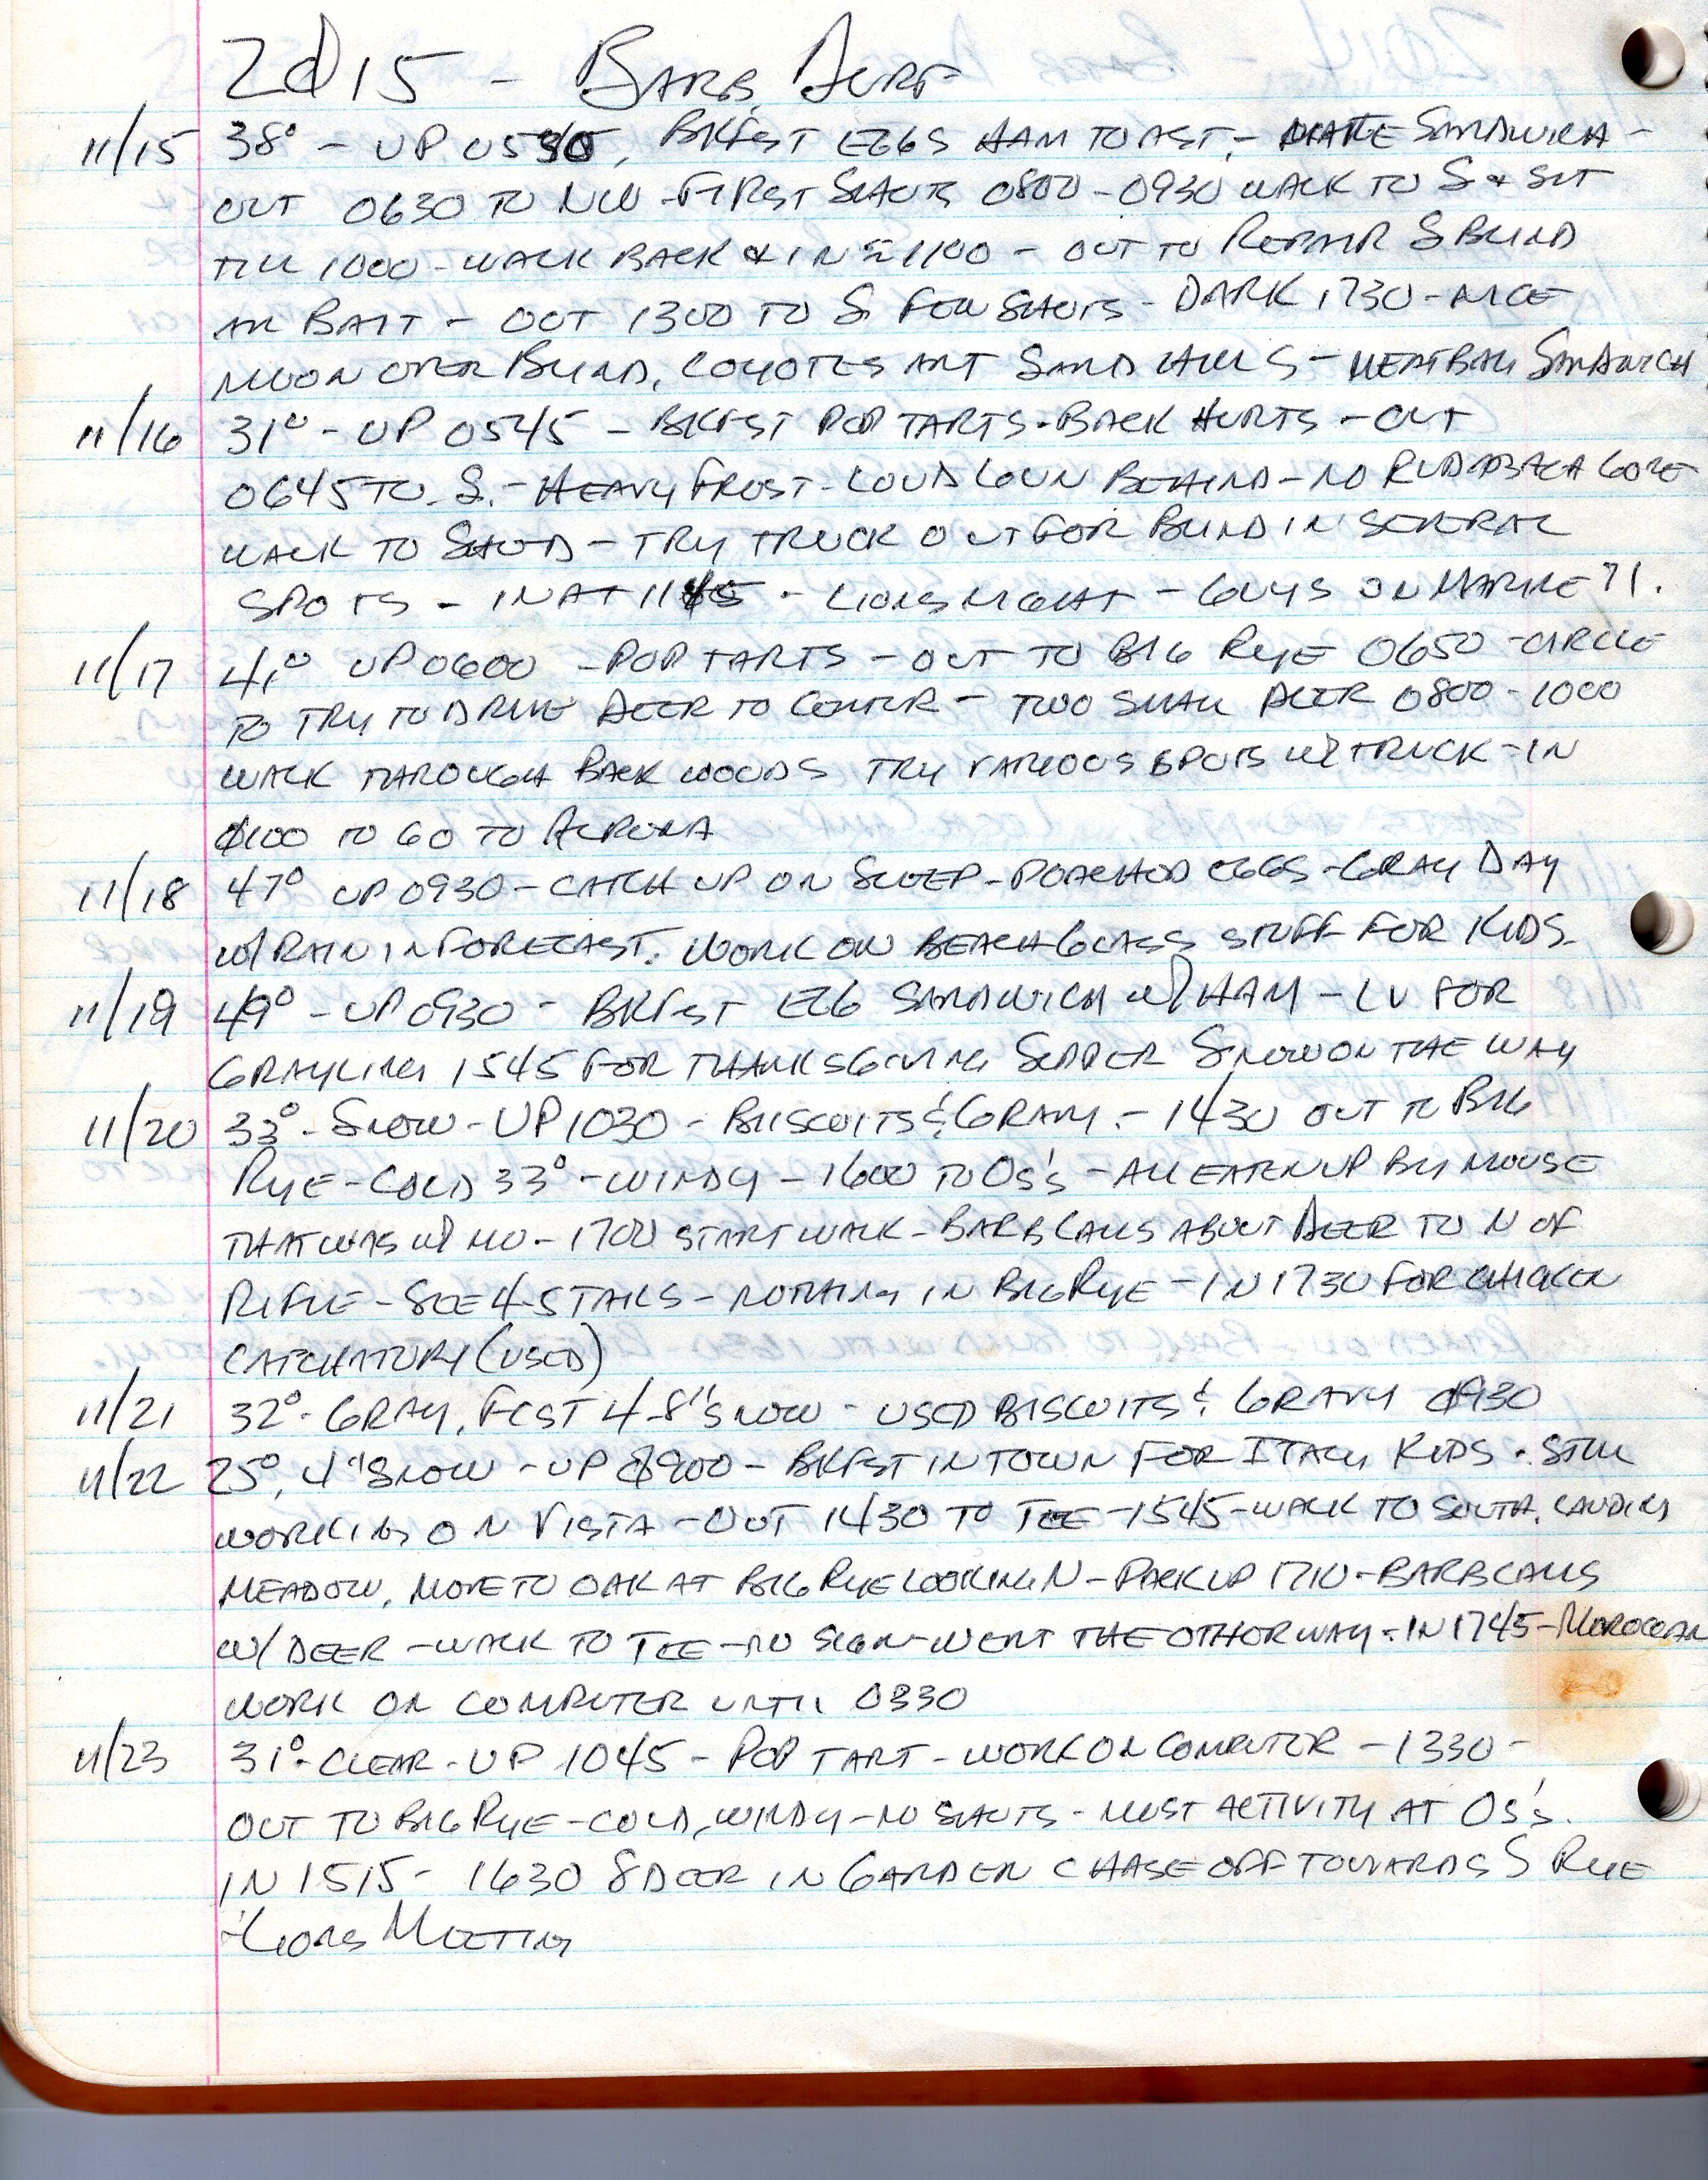 2015 - BARB, ACRE
11/15 38° - UP 0530, BKFST EGGS HAM TOAST, - MAKE SANDWICH -
OUT 0630 TO NW - FIRST SHOTS 0800 - 0930 WALK TO S & SIT
TILL 1000 - WALK BACK & IN 1100 - OUT TO REPAIR S BLIND
AN BAIT - OUT 1300 TO S. FEW SHOTS - DARK 1730 - NICE
MOON OVER BLIND, COYOTES ANT SAND HILLS - MEATBALL SANDWICH
11/16 31° - UP 0545 - BKFST POP TARTS - BACK HURTS - OUT
0645 TO S. - HEAVY FROST - LOUD LOUN BEHIND - NO GONE
WALK TO - TRY TRUCK OUT FOR BLIND IN SEVERAL
SPOTS - IN AT 1145 - LIONS NIGHT - GUYS ON MARINE 71.
11/17 41° UP 0600 - POP TARTS - OUT TO BIG RYE 0650 - CIRCLE
TO TRY TO DRIVE DEER TO CENTER - TWO SMALL DEER 0800 - 1000
WALK THROUGH BACK WOODS TRY VARIOUS SPOTS W/ TRUCK - IN
1100 TO GO TO ALPENA
11/18 47° UP 0930 - CATCH UP ON SLEEP - POACHED EGGS - GRAY DAY
W/ RAIN IN FORECAST. WORK ON BEACH GLASS STUFF FOR KIDS.
11/19 49° - UP 0930 - BKFST EGG SANDWICH W/ HAM - LV FOR
GRAYLING 1545 FOR THANKSGIVING SUPPER SNOW ON THE WAY
11/20 33° - SNOW - UP 1030 - BIISCUITS & GRAVY. - 1430 OUT TO BIG
RYE - COLD 33° - WINDY - 1600 TO OS'S - ALL EATEN UP BY MOUSE
THAT WAS W/ MO - 1700 START WALK - BARB CALLS ABOUT DEER TO N OF
RIFLE - SEE 4-5 TAILS - NOTHING IN BIG RYE - IN 1730 FOR CHICKEN
CATCHATORY (USED)
11/21 32° - GRAY, FCST 4-8" SNOW - USED BISCUITS & GRAVY 0930
11/22 25°, 4" SNOW - UP 0900 - BKFST IN TOWN FOR ITALY KIDS - STILL
WORKING ON VISTA - OUT 1430 TO TEE - 1545 - WALK TO SOUTH,
MEADOW, MOVE TO OAK AT BIG RYE LOOKING N - PACK UP 1710 - BARB CALLS
W/ DEER - WALK TO TEE - NO SIGN - WENT THE OTHER WAY - IN 1745 - MOROCCAN
WORK ON COMPUTER UNTIL 0330
11/23 31° - CLEAR - UP 1045 - POP TART - WORK ON COMPUTOR - 1330 -
OUT TO BIG RYE - COLD, WINDY - NO SHOTS - MOST ACTIVITY AT OS'S.
IN 1515 - 1630 8 DEER IN GARDEN CHASE OFF TOWARDS S RYE
- LIONS MEETING